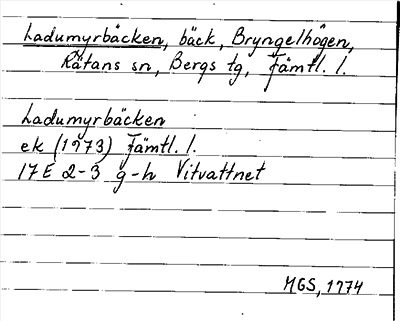 Ladumyrbäcken, bäck, Bryngelhögen,
Rätans sn, Bergs tg, Jämtl. l.
Ladumyrbäcken
ek (1973) Jämtl. l.
17E 2-3 g-h Vitvattnet
MGS, 1974